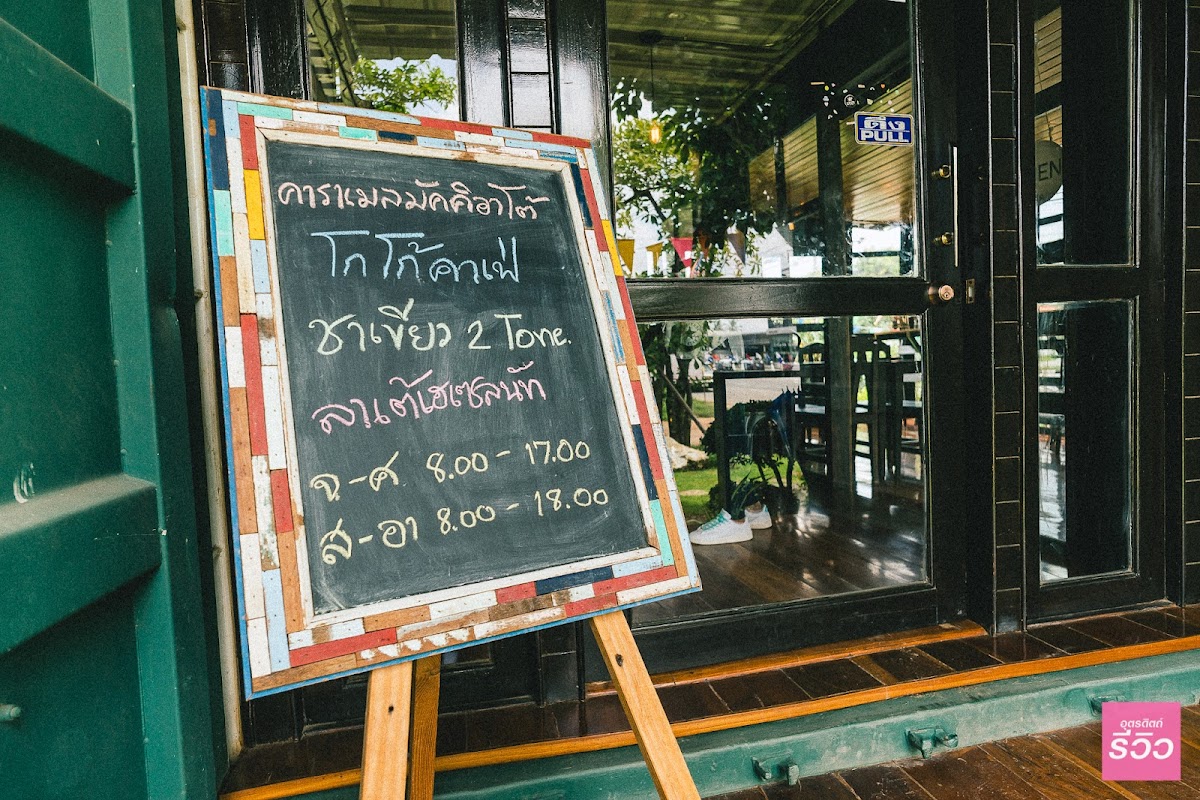 คาราเมลมัคคิอาโต้
โกโก้คาเฟ่
ชาเขียว 2 Tone.
ลาเต้เฮเซลนัท
จ.-ศ. 8.00 - 17.00
ส - อา 8.00 - 18.00
ดึง
PULL
EN
อุตรดิตถ์
รีวิว